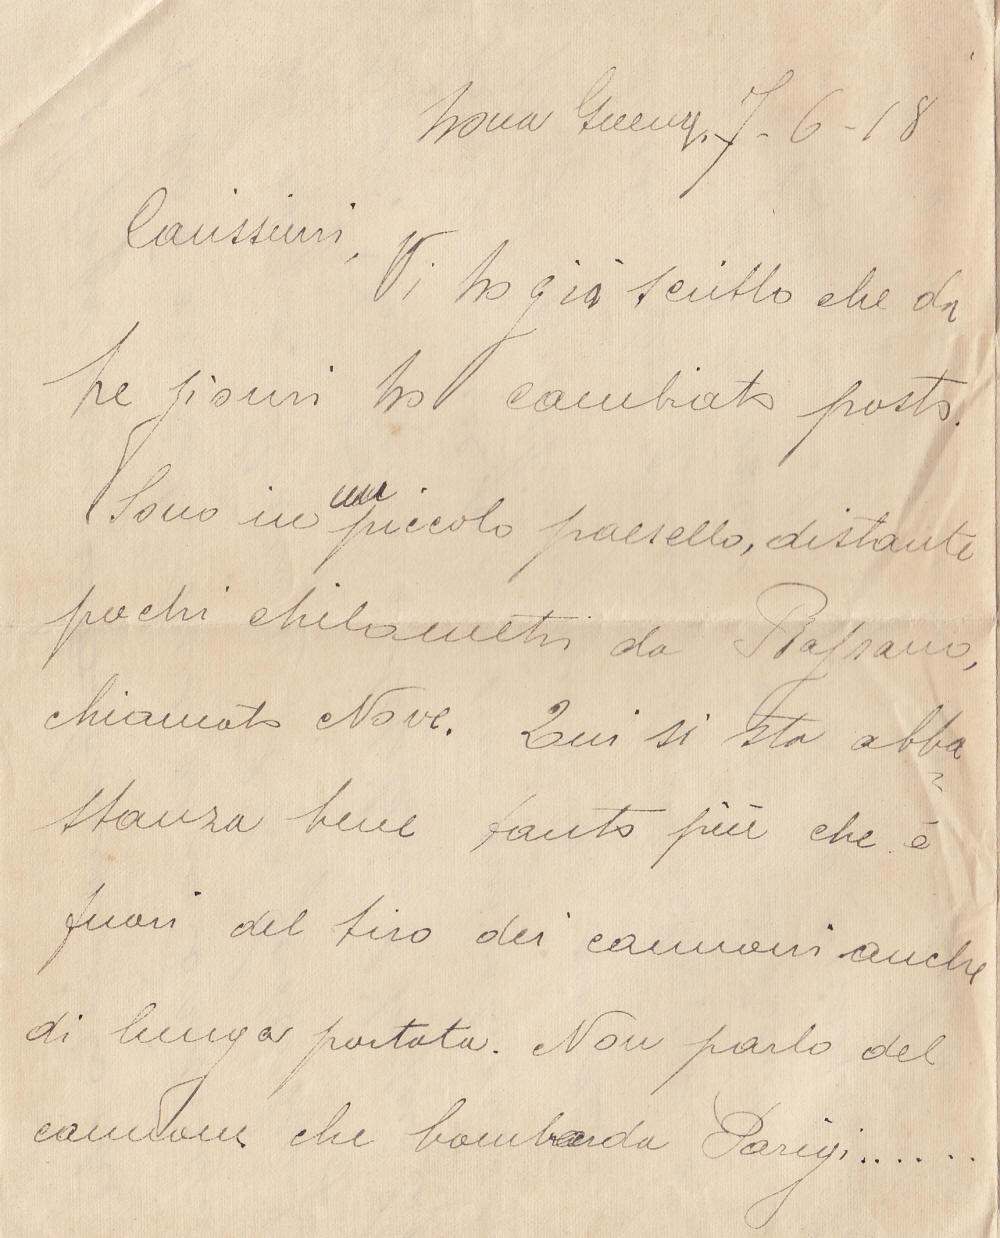 Zona Guerra, 7-6-18
Carissimi,
Vi ho già scritto che da
tre giorni ho cambiato posto.
Sono in un piccolo paesello, distante
pochi chilometri da Bassano,
chiamato Nove. Qui si sta abba-
stanza bene tanto più che è
fuori del tiro dei cannoni anche
di lunga portata. Non parlo del
cannone che bombarda Parigi......